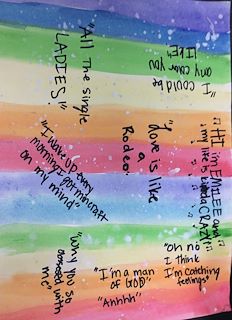 "I could be
any color you
like"
"All The single
LADIES!"
♫ Hi I'm EMILEE and ♫
♫ my life is kinda CRAZY! ♫
"Love is like
a
Rodeo"
"I wake up every
morning I got mincraft
on my mind"
"Oh no
I think
I'm catching
feelings"
"I'm a man
of GOD"
"Ahhhh"
"Why you so
obsessed with
me"